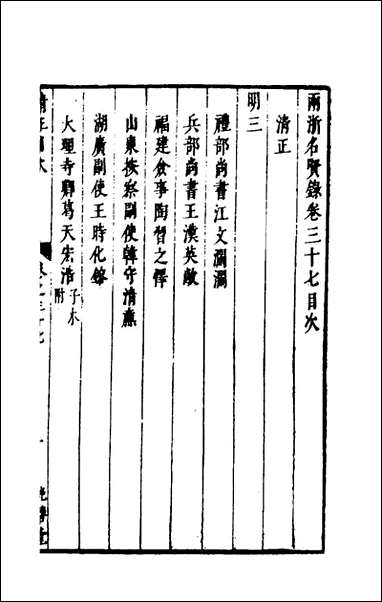 兩浙名賢錄卷三十七目次
清正
明三
禮部尚書江文瀾瀾
兵部尚書王漢英敞
福建僉事陶習之懌
山東按察副使韓守清廉
湖廣副使王時化鎔
大理寺卿葛天宏浩子木附